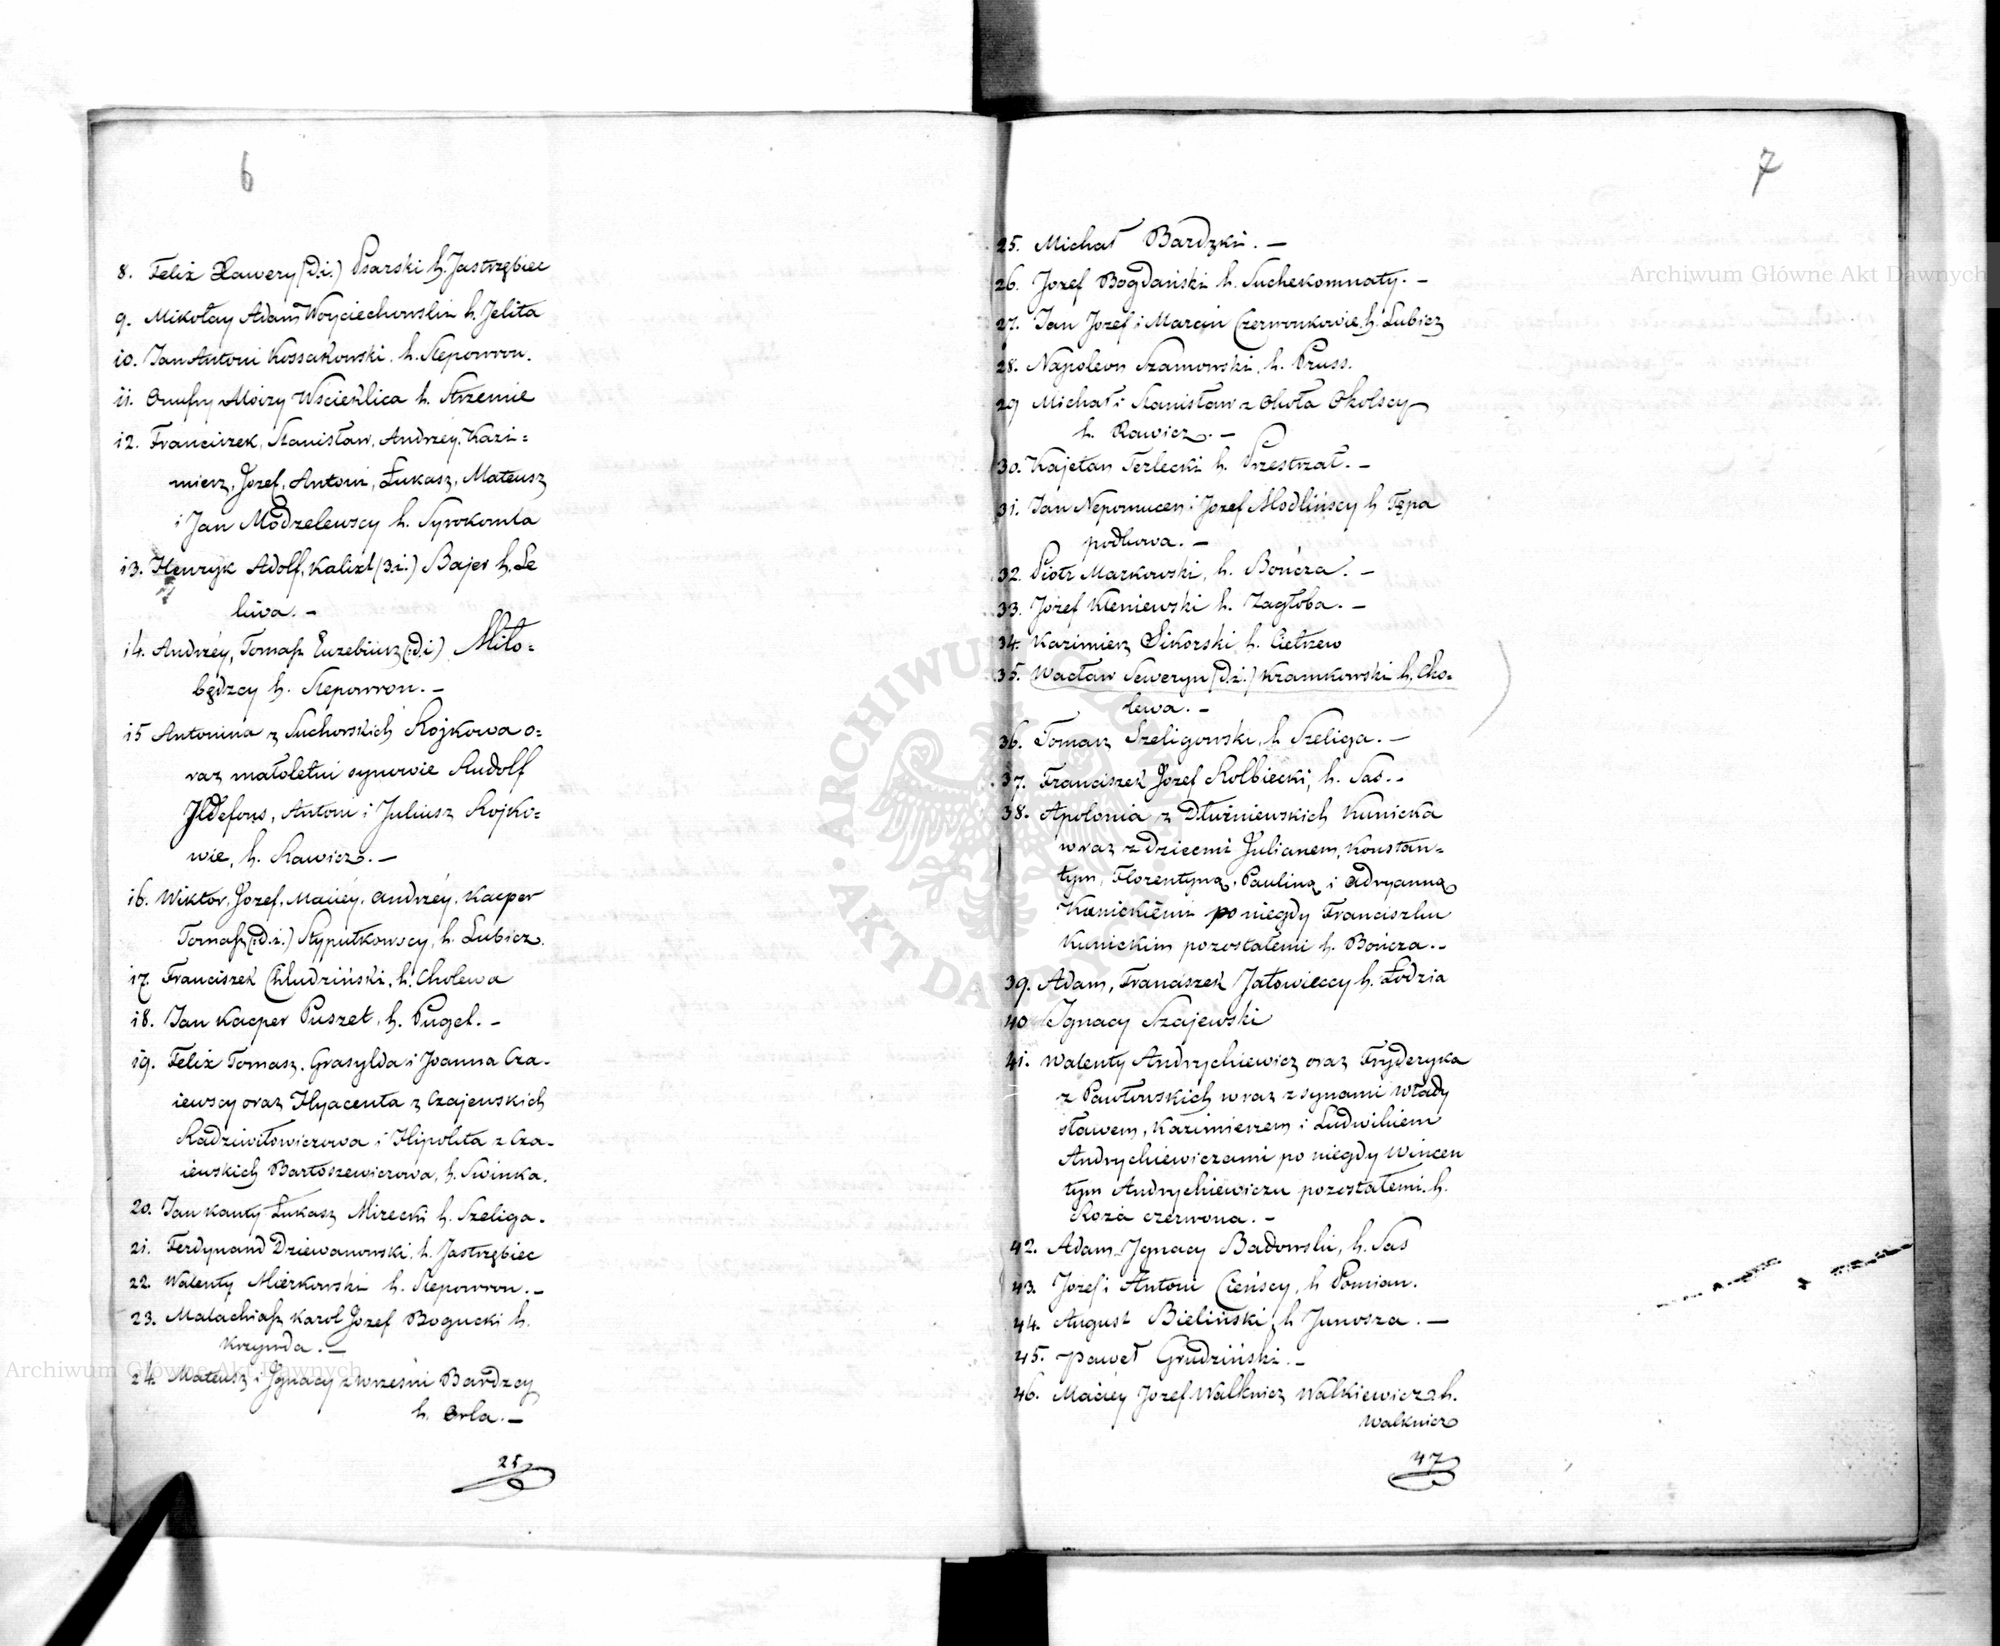 6
8. Felix Xawery (d.i.) Psarski h. Jastrzębiec
9. Mikołay Adam Woyciechowski h. Jelita
10. Jan Antoni Kossakowski. h. Slepowron.
11. Onufry Moizy Wscieklica h. Strzemie
12. Franciszek, Stanisław, Andrzey, Kazi=
mierz, Jozef, Antoni, Łukasz, Mateusz
i Jan Modzelewscy h. Syrokomla
13. Henryk Adolf, Kalixt (3.i.) Bajer h. Le
liwa. —
14. Andrzéy, Tomasz Euzebiusz (:d.i) Miło=
będzcy h. Slepowron. —
15 Antonina z Suchorskich Rojkowa o=
raz małoletni synowie Rudolf
Ildefons, Antoni i Juliusz Rojko=
wie, h. Rawicz. —
16. Wiktor, Jozef, Maciéy, Andrzéy, Kacper
Tomasz (:d.i.) Stypułkowscy, h. Lubicz.
17. Franciszek Chludziński, h. Cholewa
18. Jan Kacper Puszet, h. Pugel. —
19. Felix Tomasz, Grasylda i Joanna Cza-
iewscy oraz Hyacenta z Czajewskich
Radziwiłowiczowa i Hipolita z Cza-
iewskich Bartoszewiczowa, h. Swinka.
20. Jan Kanty Łukasz Mirecki h. Szeliga.
21. Ferdynand Dziewanowski. h. Jastrzębiec
22. Walenty Mierkowski h. Slepowron. —
23. Malachiasz Karol Jozef Bogucki h.
Krzywda. —
24. Mateusz i Ignacy z Wrześni Bardzcy
h. Orla. —
25
7
25. Michał Bardzki. —
26. Jozef Bogdański h. Suchekomnaty. —
27. Jan Jozef i Marcin Czerwonkowie h. Lubicz
28. Napoleon Szamowski, h. Pruss.
29 Michał i Stanisław z Okoła Okolscy
h. Rawicz. —
30. Kajetan Terlecki h. Przestrzał. —
31. Jan Nepomucen i Jozef Modlińscy h Tępa
podkowa. —
32. Piotr Markowski, h. Bończa. —
33. Józef Kleniewski h. Zagłoba. —
34. Kazimierz Sikorski h. Cietrzew
35. Wacław Seweryn (d.i.) Kramkowski h. Cho-
lewa. —
36. Tomasz Szeligowski, h Szeliga. —
37. Franciszek Jozef Rolbiecki, h. Sas. -
38. Apolonia z Dłużniewskich Kunicka
wraz z dziecmi Julianem, Konstan=
tym, Florentyną, Pauliną i Adryanną
Kunickiémi po niegdy Franciszku
Kunickim pozostałemi h. Bończa. —
39. Adam, Franciszek Jałowieccy h. Łodzia
40 Ignacy Szajewski
41. Walenty Andrychiewicz oraz Fryderyka
z Pawłowskich wraz z synami Włady
sławem, Kazimierzem i Ludwikiem
Andrychiewiczami po niegdy Wincen
tym Andrychiewiczu pozostałemi. h.
Roża czerwona. —
42. Adam Ignacy Badowski, h. Sas
43. Józef i Antoni Cieńscy, h Pomian.
44. August Bieliński, h Junosza. —
45. Paweł Grudziński. —
46. Maciéy Jozef Walknicz Walkiewicz h.
Walknicz
47
Archiwum Główne Akt Dawnych
Archiwum Główne Akt Dawnych
ARCHIWUM GŁÓWNE AKT DAWNYCH